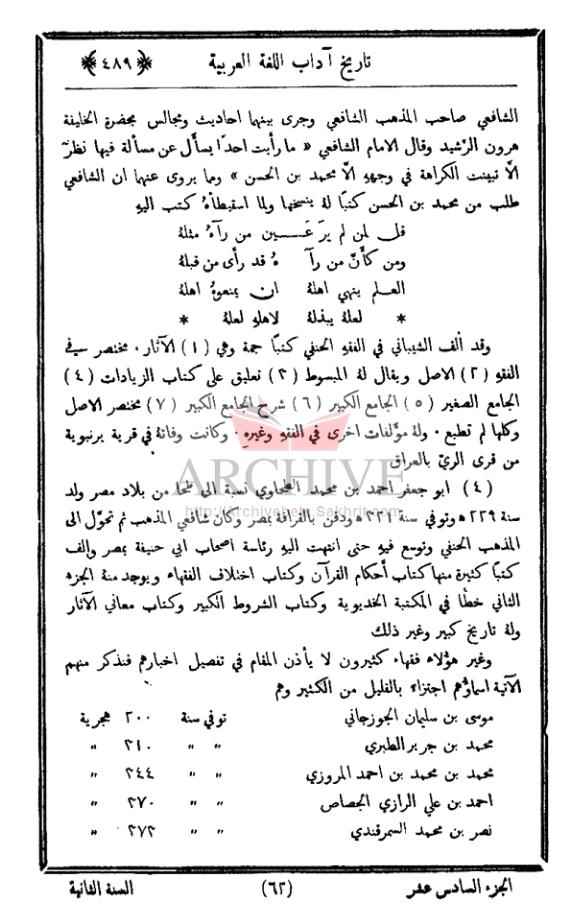 تاريخ آداب اللغة العربية ﴿٤٨٩﴾
الشافعي صاحب المذهب الشافعي وجرى بينهما احاديث ومجالس بحضرة الخليفة
هرون الرشيد وقال الامام الشافعي « ما رأيت احدًا يسأل عن مسألة فيها نظر
الّا تبينت الكراهة في وجههِ الّا محمد بن الحسن » ومما يروى عنهما ان الشافعي
طلب من محمد بن الحسن كتبًا لهُ ينسخها ولما استبطأهُ كتب اليهِ
قل لمن لم يرَ عَــين من رآهُ مثلهُ
ومن كأنّ من رآ هُ قد رأى من قبلهُ
العلم ينهي اهلهُ ان يمنعوهُ اهلهُ
* لعلهُ يبذلهُ لاهلهِ لعلهُ *
وقد الف الشيباني في الفقه الحنفي كتبًا جمة وهي (١) الآثار . مختصر في
الفقه (٢) الاصل ويقال لهُ المبسوط (٣) تعليق على كتاب الزيادات (٤)
الجامع الصغير (٥) الجامع الكبير (٦) شرح الجامع الكبير (٧) مختصر الاصل
وكلها لم تطبع . ولهُ مؤلفات اخرى في الفقه وغيرهِ . وكانت وفاتهُ في قرية برنبوية
من قرى الريّ بالعراق
(٤) ابو جعفر احمد بن محمد الطحاوي نسبة الى طحا من بلاد مصر ولد
سنة ٢٢٩ ه وتوفي سنة ٣٢١ ه ودفن بالقرافة بمصر وكان شافعي المذهب ثم تحوّل الى
المذهب الحنفي وتوسع فيهِ حتى انتهت اليهِ رئاسة اصحاب ابي حنيفة بمصر والف
كتبًا كثيرة منها كتاب أحكام القرآن وكتاب اختلاف الفقهاء ويوجد منهُ الجزء
الثاني خطًا في المكتبة الخديوية وكتاب الشروط الكبير وكتاب معاني الآثار
ولهُ تاريخ كبير وغير ذلك
وغير هؤلاء فقهاء كثيرون لا يأذن المقام في تفصيل اخبارهم فنذكر منهم
الآتية اسماؤهم اجتزاء بالقليل من الكثير وهم
موسى بن سليمان الجوزجاني توفي سنة ٢٠٠ هجرية
محمد بن جرير الطبري " " ٣١٠ "
محمد بن محمد بن احمد المروزي " " ٣٤٤ "
احمد بن علي الرازي الجصاص " " ٣٧٠ "
نصر بن محمد السمرقندي " " ٣٧٣ "
الجزء السادس عشر (٦٢) السنة الثانية
ARCHIVE
http://Archivebeta.Sakhrit.com